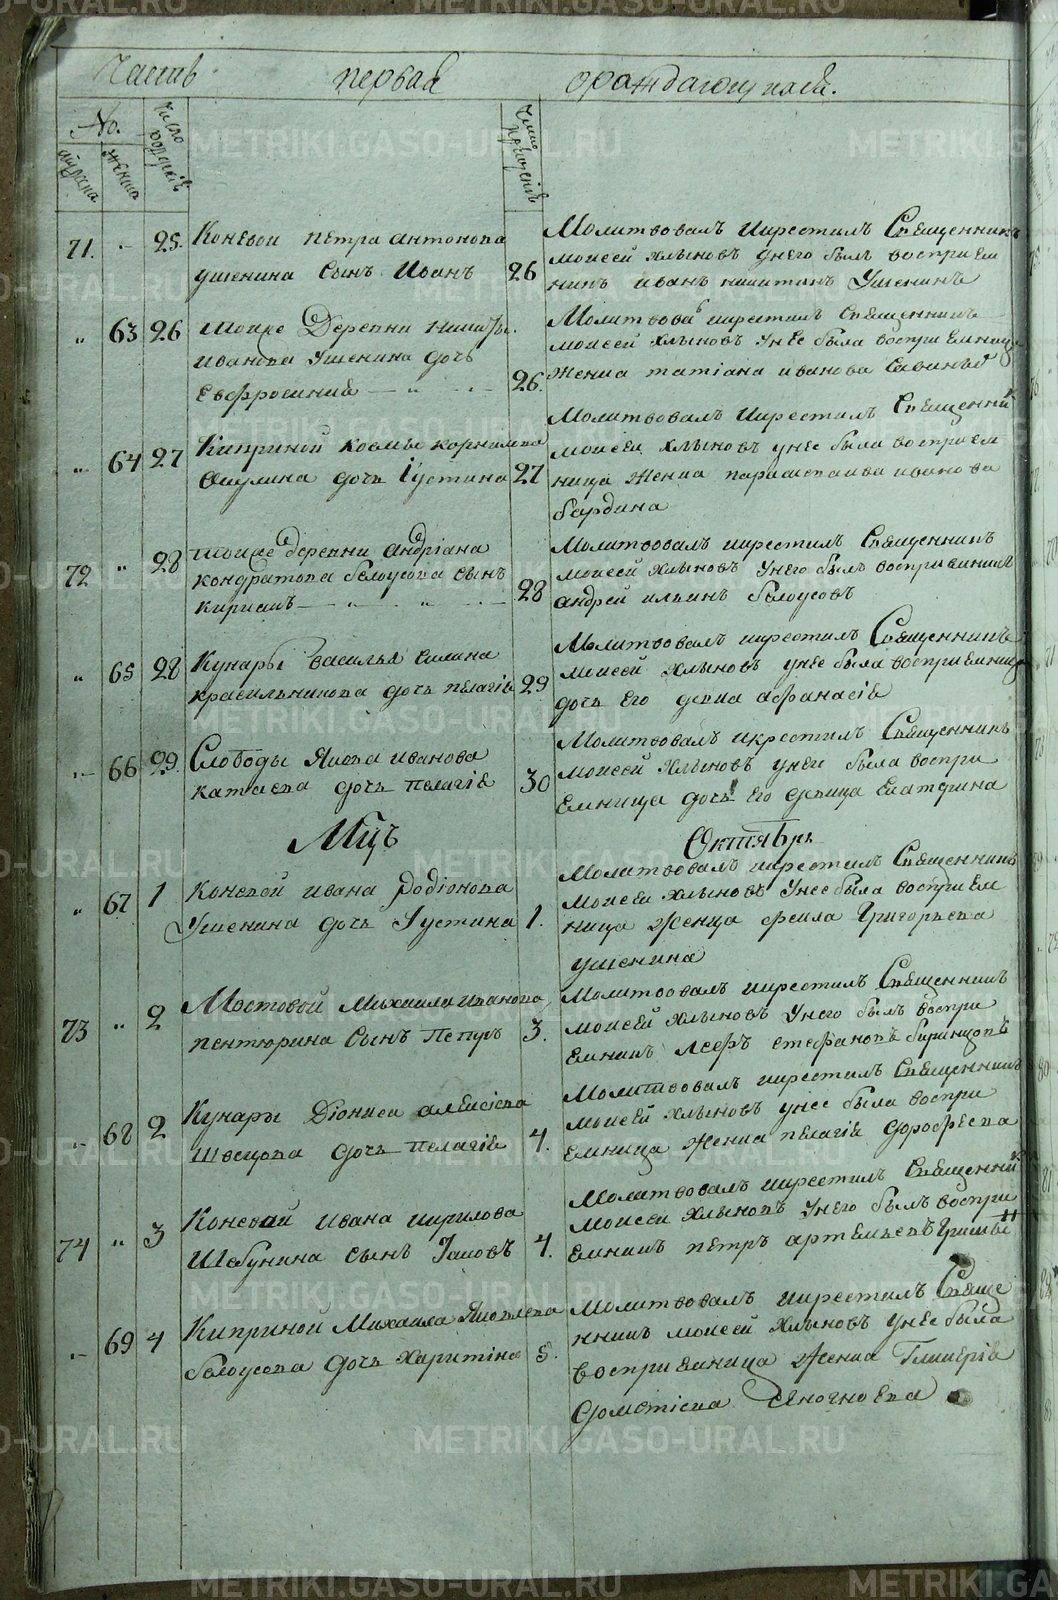 Часть первая о раждающихся.
№.
Число рождений
Число крещений
71. 25. Коневои петра антонова
ушенина сынъ Иванъ 26
Молитвовалъ икрестилъ Священникъ
моисей хлыновъ унего былъ восприем
никъ иванъ никитинъ Ушенинъ
63 26 тоиже Деревни никиты
иванова Ушенина дочь
Евфросиния 26.
Молитвовалъ икрестилъ священникъ
моисей хлыновъ унее была восприемница
женка татiана иванова
64 27 Киприной космы корнилова
Окулина дочь Iустина 27
Молитвовалъ Икрестилъ Священникъ
моисей хлыновъ унее была восприем
ница женка параскева иванова
бардина
72 28 тоиже деревни андрiана
кондратова белоусова сынъ
кирикъ 28
Молитвовалъ икрестилъ Священникъ
моисей хлыновъ Унего былъ восприемникъ
андрей ильинъ белоусовъ
65 28 Кунары василья силина
красильникова дочь пелагiя 29
Молитвовалъ икрестилъ Священникъ
моисей хлыновъ унее была восприемница
дочь его девка афанасiя
66 29 Слободы Якова иванова
катаева дочь пелагiя 30
Молитвовалъ икрестилъ Священникъ
моисей хлыновъ унеи была воспри
емница дочь его девица Екатерина
Мцъ Октябрь
67 1 Коневой ивана родiонова
Ушенина дочь Iустина 1.
Молитвовалъ икрестилъ Священникъ
моисей хлыновъ Унее была восприем
ница женка фекла Григорьева
ушенина
73 2 Мостовой Михаила иванова
пентюрина сынъ Петръ 3.
Молитвовалъ икрестилъ Священникъ
моисей хлыновъ Унего былъ воспри
емникъ стефановъ
68 2 Кунары Дiониса алексiева
Швецова дочь пелагiя 4.
Молитвовалъ икрестилъ Священникъ
моисей хлыновъ унее была воспри
емница женка пелагiя дорофеева
74 3 Коневой ивана кирилова
Шебунина сынъ Iаковъ 4.
Молитвовалъ икрестилъ Священникъ
моисей хлыновъ Унего былъ воспри
емникъ петръ артемьевъ
69 4 Киприной Михаила Яковлева
белоусова дочь харитiна 5.
Молитвовалъ икрестилъ Свяще
нникъ моисей хлыновъ унее была
восприемница женка Гликерiя
METRIKI.GASO-URAL.RU